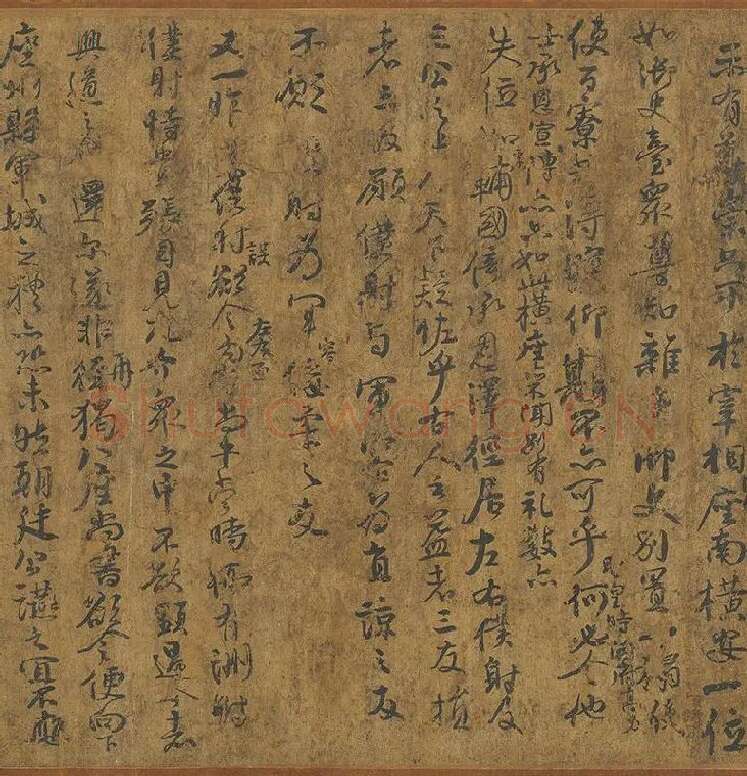 亦有尊崇只可於宰相座南横安一位
如御史臺衆尊知雜事御史别置一榻
使百寮共得瞻仰不亦可乎何必令他
聖皇時開府高力
士承恩宣傳亦只如此横座不聞别有礼數亦
失位如李輔國倚承恩澤徑居左右僕射及
三公之上令天下疑怪乎古人云益者三友損
者三友願僕射与軍容爲直諒之友
不願僕射爲軍容佞柔之友
又一昨裴僕射誤欲令左右丞當時輒有酬對
僕射恃貴張目見尤介衆之中不欲顯過今者
興道之會還爾遂非再猲八座尚書欲令便向下
座州縣軍城之禮亦恐未然朝廷公讌之宜不應